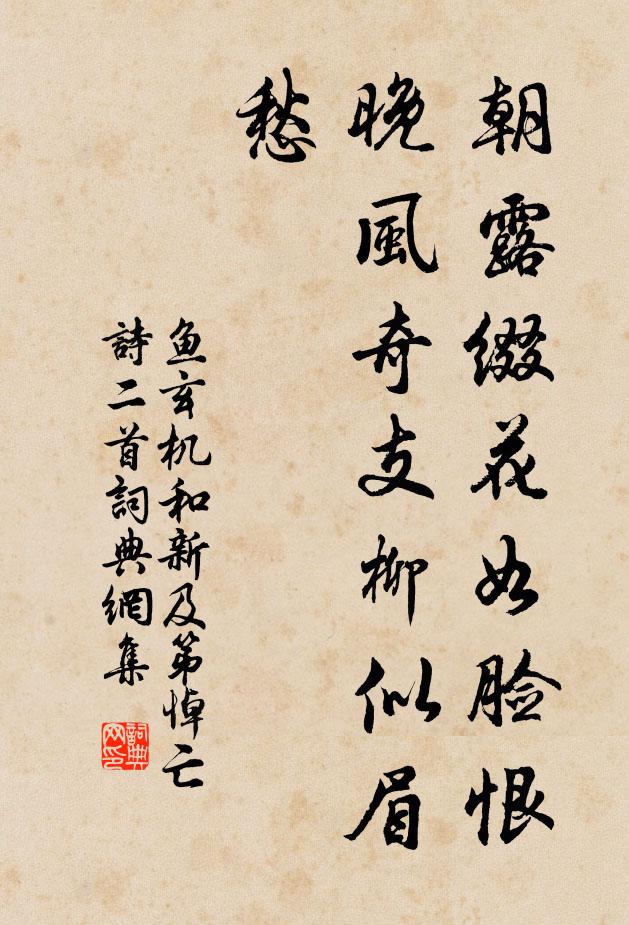 朝露缀花如脸恨
晚風奇支柳似眉
愁
鱼玄机和新及第悼亡
詩二首詞典網集
詞典
网印